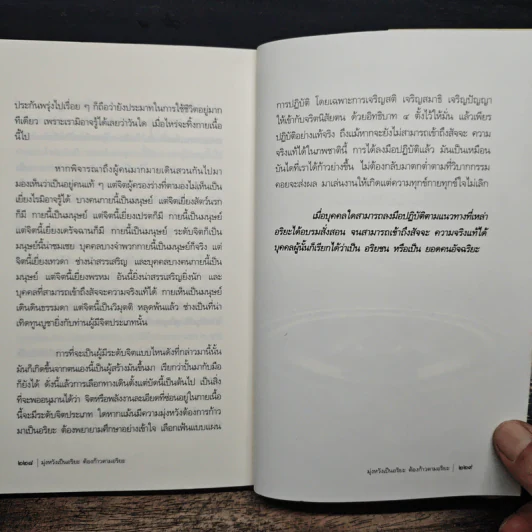 ประกันพรุ่งไปเรื่อย ๆ ก็ถือว่ายังประมาทในการใช้ชีวิตอยู่มาก
ทีเดียว เพราะเรามิอาจรู้ได้เลยว่าวันใด เมื่อไหร่จะทิ้งกายเนื้อ
นี้ไป
หากพิจารณาถึงผู้คนมากมายเดินสวนกันไปมา
มองเห็นว่าเป็นอยู่คนแท้ ๆ แต่จิตผู้ครองร่างที่ตามองไม่เห็นเป็น
เยี่ยงไรมิอาจรู้ได้ บางคนกายนี้เป็นมนุษย์ แต่จิตเยี่ยงสัตว์นรก
ก็มี กายนี้เป็นมนุษย์ แต่จิตนี้เยี่ยงเปรตก็มี กายนี้เป็นมนุษย์
แต่จิตนี้เยี่ยงเดรัจฉานก็มี กายนี้เป็นมนุษย์ ระดับจิตก็เป็น
มนุษย์นี้น่าชมเชย บุคคลบางจำพวกกายนี้เป็นมนุษย์ก็จริง แต่
จิตนี้เยี่ยงเทวดา ช่างน่าสรรเสริญ และบุคคลบางคนกายนี้เป็น
มนุษย์ แต่จิตนี้เยี่ยงพรหม อันนี้ยิ่งน่าสรรเสริญยิ่งนัก และ
บุคคลที่สามารถเข้าถึงสัจจะความจริงแท้ได้ กายเห็นเป็นมนุษย์
เดินดินธรรมดา แต่จิตนี้เป็นวิมุตติ หลุดพ้นแล้ว ช่างเป็นที่น่า
เทิดทูนบูชายิ่งกับท่านผู้มีจิตประเภทนั้น
การที่จะเป็นผู้มีระดับจิตแบบไหนดังที่กล่าวมานี้นั้น
มันก็เกิดขึ้นจากตนเองนี้เป็นผู้สร้างมันขึ้นมา เรียกว่าปั้นมากับมือ
ก็ยังได้ ดังนี้แล้วการเลือกทางเดินตั้งแต่บัดนี้เป็นต้นไป เป็นสิ่ง
ที่จะพออนุมานได้ว่า จิตหรือพลังงานละเอียดที่ซ่อนอยู่ในกายเนื้อ
นี้จะมีระดับจิตประเภท ใดหากแม้นมีความมุ่งหวังต้องการก้าว
มาเป็นอริยะ ต้องพยายามศึกษาอย่างเข้าใจ เลือกเฟ้นแบบแผน
๒๒๘ | มุ่งหวังเป็นอริยะ ต้องก้าวตามอริยะ
การปฏิบัติ โดยเฉพาะการเจริญสติ เจริญสมาธิ เจริญปัญญา
ให้เข้ากับจริตนิสัยตน ด้วยอิทธิบาท ๔ ตั้งไว้ให้มั่น แล้วเพียร
ปฏิบัติอย่างแท้จริง ถึงแม้หากจะยังไม่สามารถเข้าถึงสัจจะ ความ
จริงแท้ได้ในภพชาตินี้ การได้ลงมือปฏิบัติแล้ว มันเป็นเหมือน
บันไดที่เราได้ก้าวย่างขึ้น ไม่ต้องกลับมาตกต่ำตามที่วิบากกรรม
คอยจะส่งผล มาเล่นงานให้เกิดแต่ความทุกข์กายทุกข์ใจไม่เลิก
เมื่อบุคคลใดสามารถลงมือปฏิบัติตามแนวทางที่เหล่า
อริยะได้อบรมสั่งสอน จนสามารถเข้าถึงสัจจะ ความจริงแท้ได้
บุคคลผู้นั้นก็เรียกได้ว่าเป็น อริยชน หรือเป็น ยอดคนอัจฉริยะ
มุ่งหวังเป็นอริยะ ต้องก้าวตามอริยะ | ๒๒๙